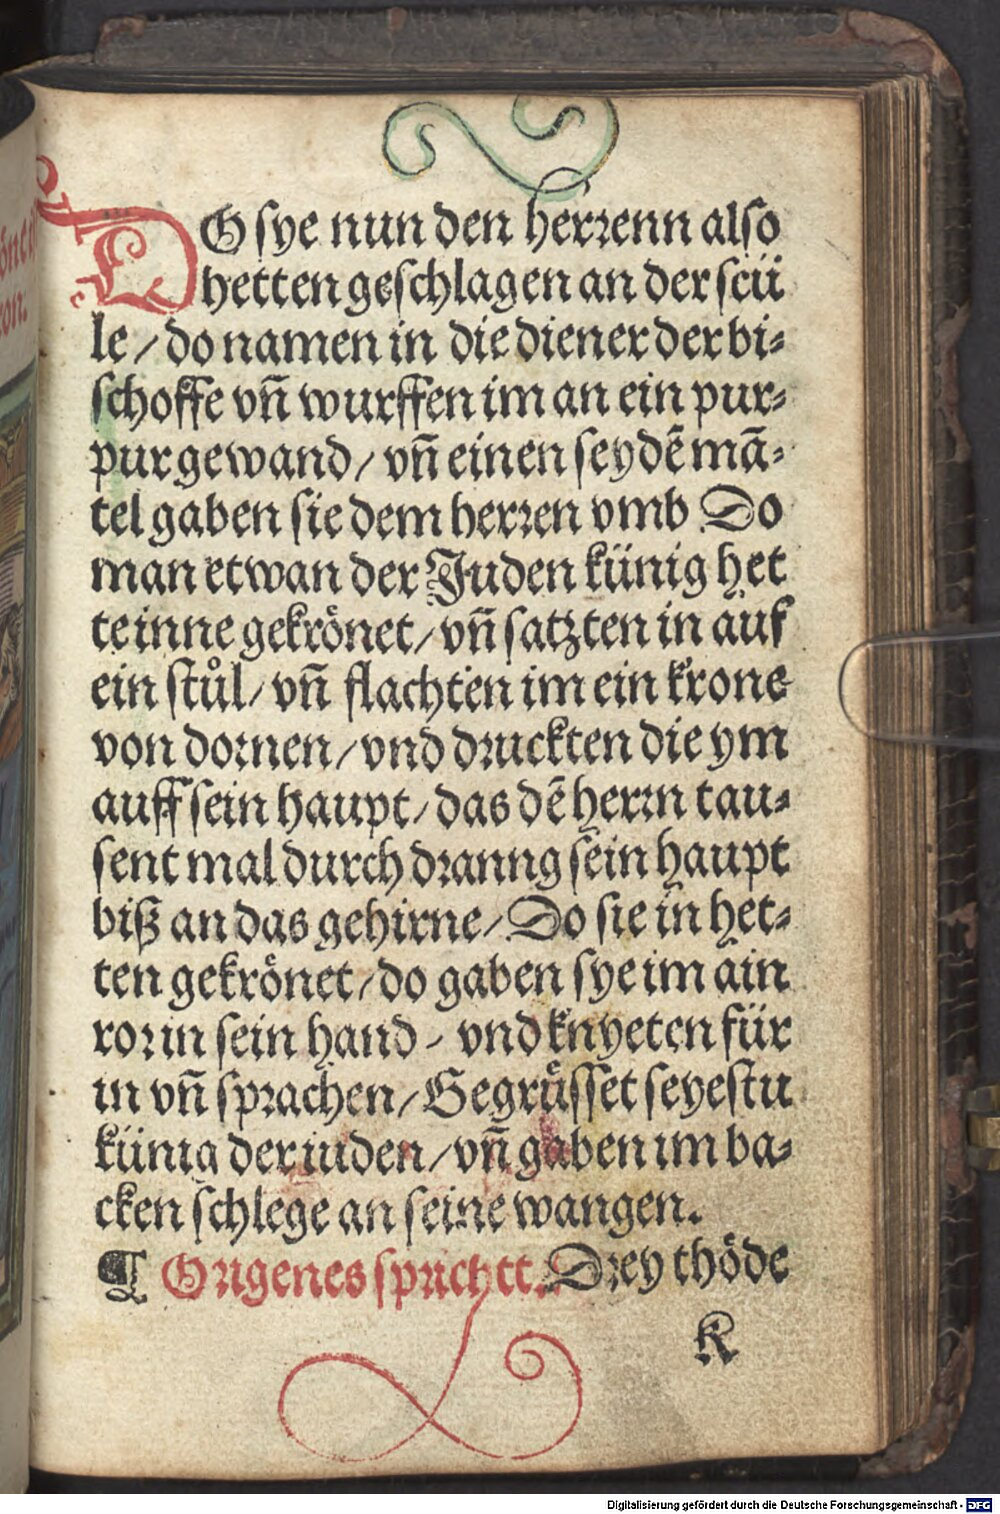 DO sye nun den herrenn also
hetten geschlagen an der seü
le / do namen in die diener der bi⸗
schoffe vn̄ wurffen im an ein pur⸗
pur gewand / vn̄ einen seydē mā⸗
tel gaben sie dem herren vmb Do
man etwan der Juden künig het
te inne gekrönet / vn̄ satzten in auf
ein stůl / vn̄ flachten im ein krone
von dornen / vnd druckten die ym
auff sein haupt / das dē herrn tau⸗
sent mal durch dranng sein haupt
biß an das gehirne / Do sie in het⸗
ten gekrönet / do gaben sye im ain
ror in sein hand / vnd knyeten für
in vn̄ sprachen / Gegrüsset seyestu
künig der iuden / vn̄ gaben im ba⸗
cken schlege an seine wangen.
¶ Origenes sprichtt. Drey thöde
K
Digitalisierung gefördert durch die Deutsche Forschungsgemeinschaft - DFG